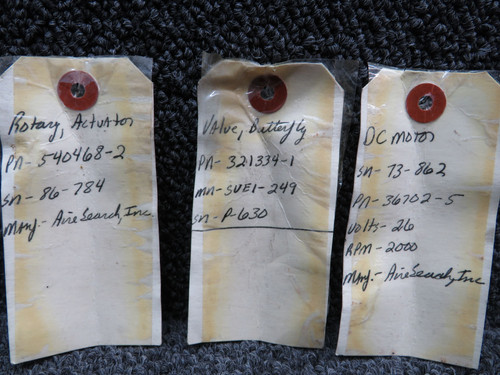 Rotary, Actuator
PN- 540468-2
SN- 86-784
Manf.- AireSearch, Inc
Valve, Butterfly
PN- 321334-1
MN- SUE1-249
SN- P-630
DC Motor
SN- 73-862
PN- 36702-5
Volts- 26
RPM- 2000
Manf.- AireSearch, Inc